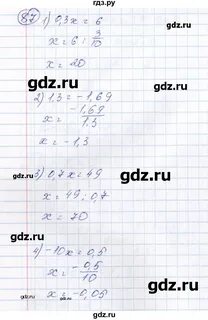 гдз.ру
87 1) 0,3x = 6
x = 6 : 3/10
x = 20
2) 1,3 = -1,69
x = -1,69/1,3
x = -1,3
3) 0,7x = 49
x = 49 : 0,7
x = 70
4) -10x = 0,5
x = -0,5/10
x = -0,05
gdz.ru gdz.ru
gdz.ru gdz.ru
gdz.ru gdz.ru
gdz.ru gdz.ru